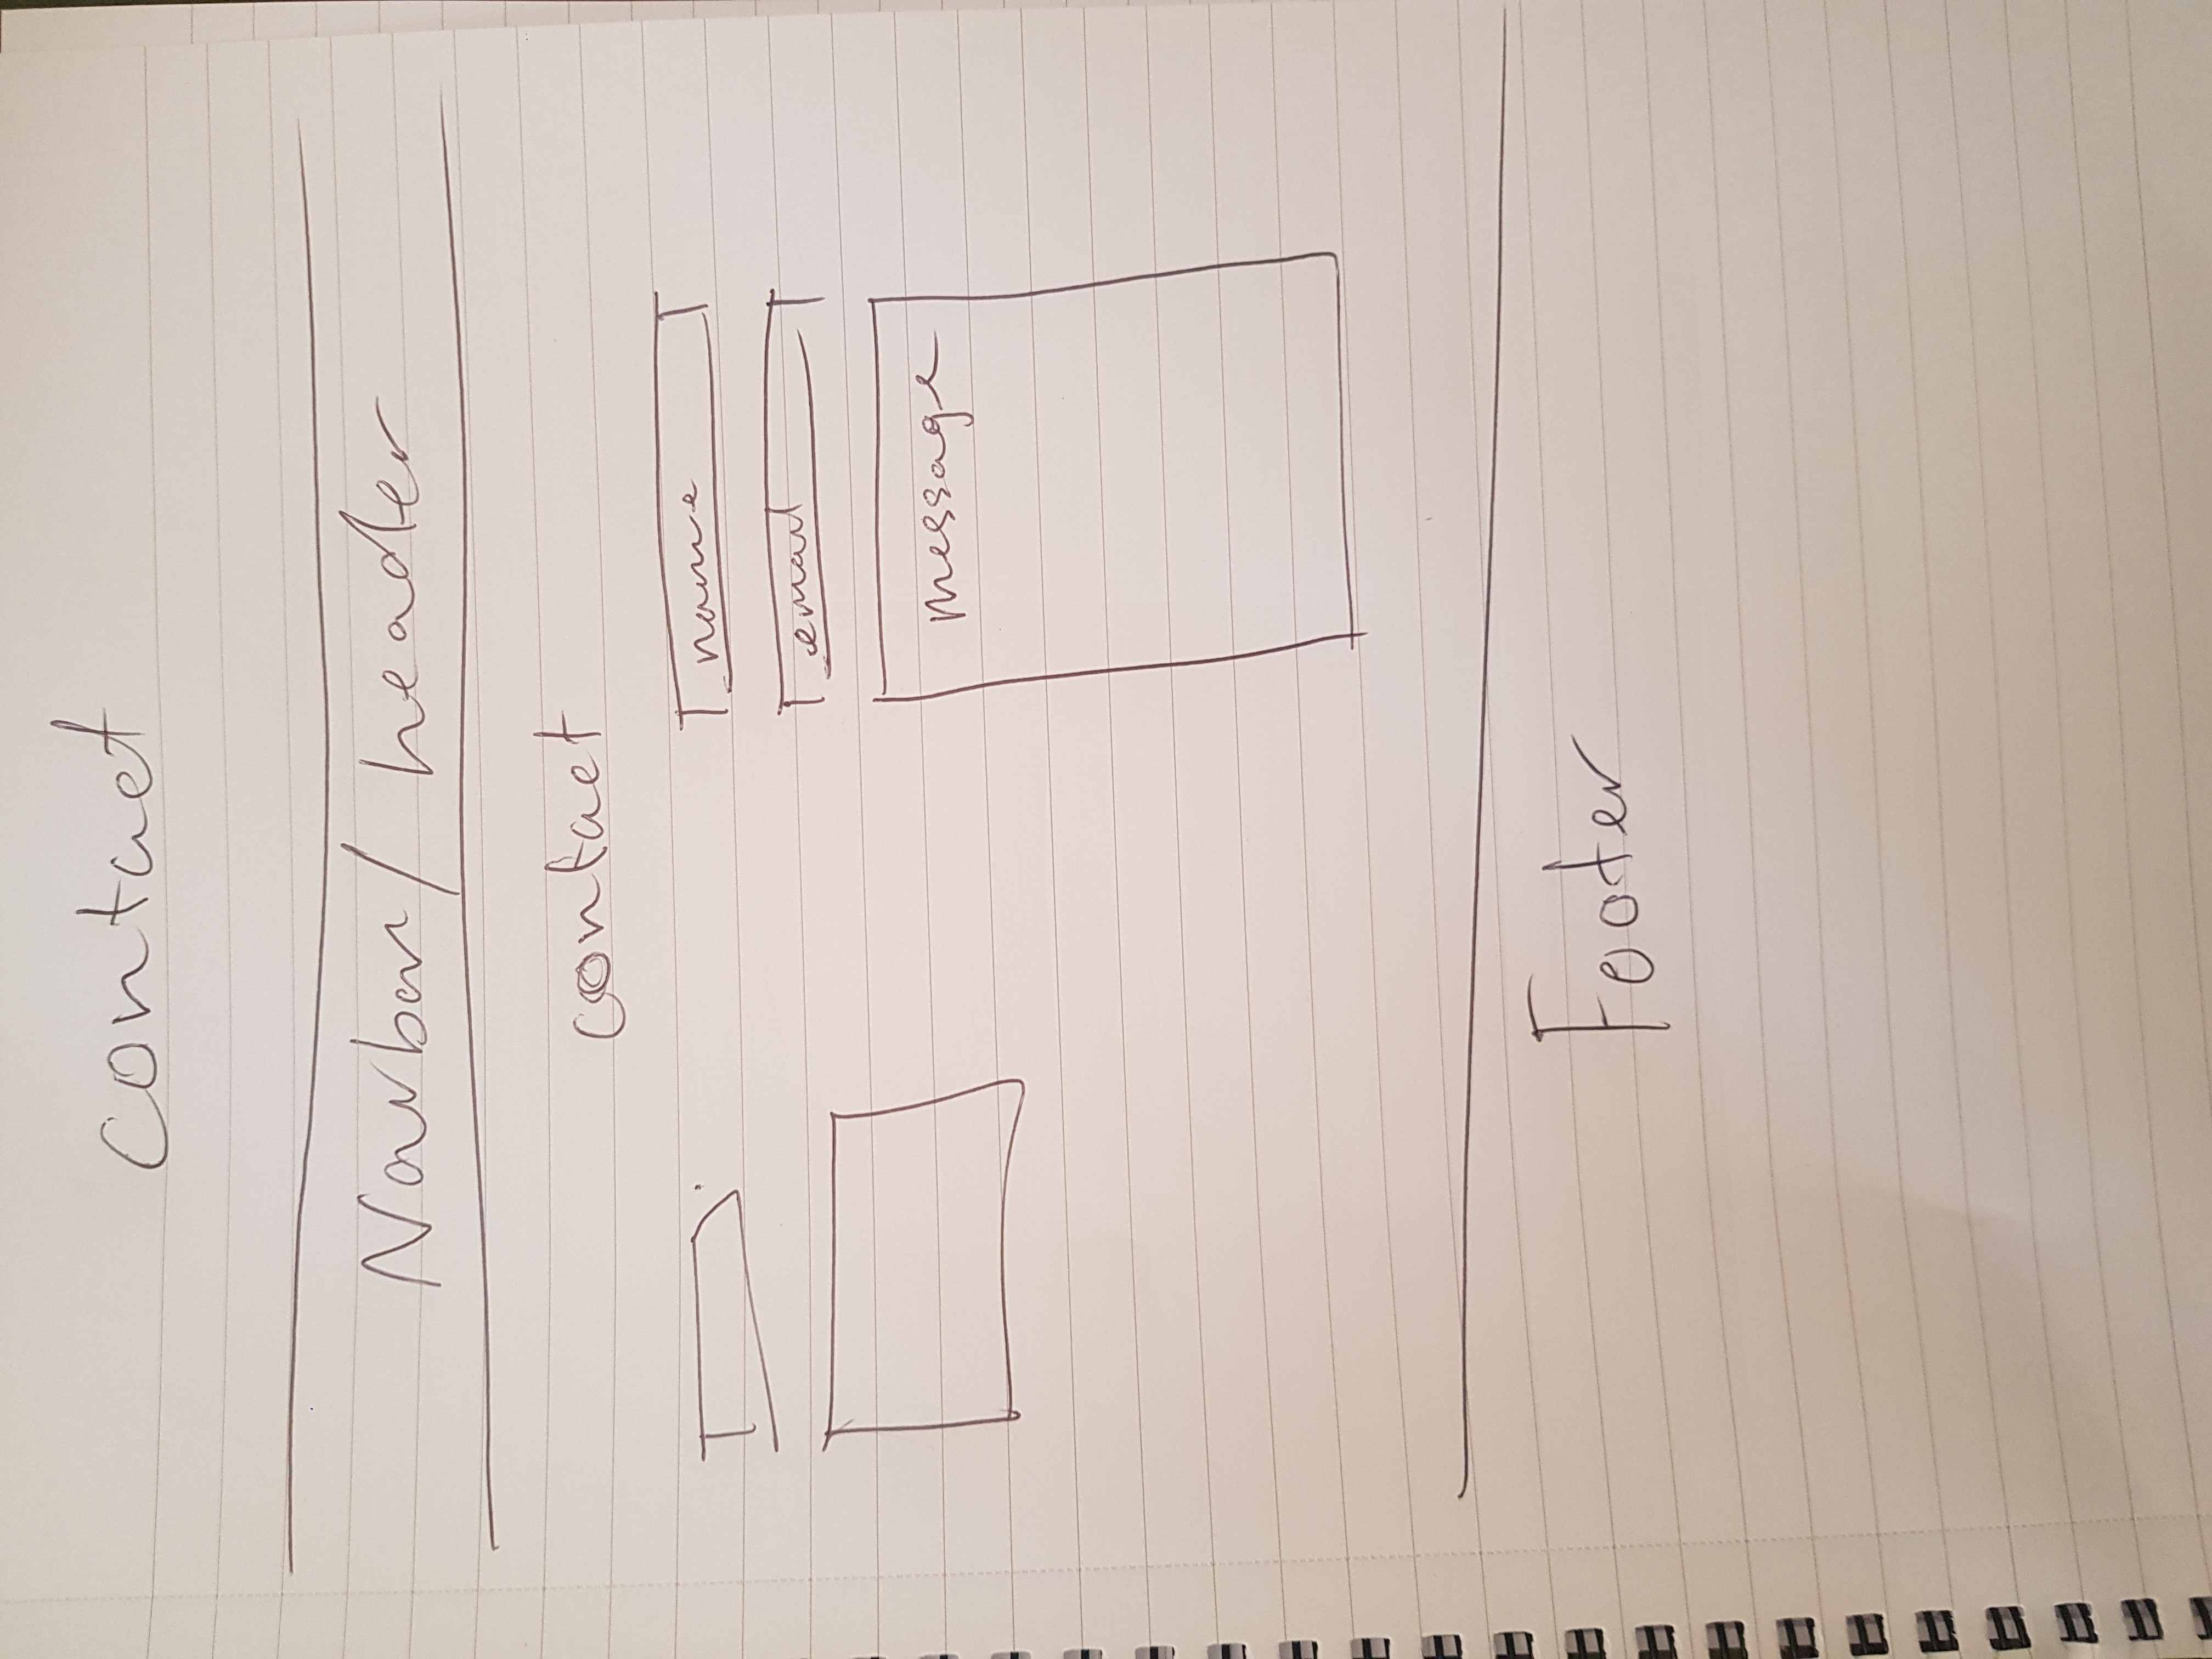 contact
Navbar / header
contact
name
email
message
Footer